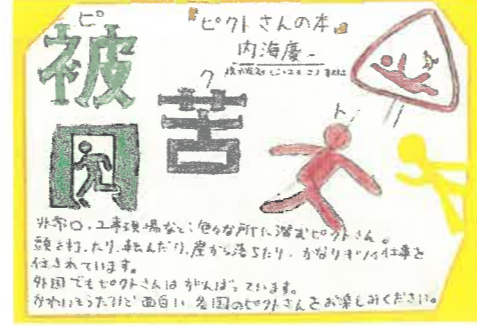 『ピクトさんの本』
内海慶一
ピ
被
ク
苦
ト
非常口、工事現場など色々な所に潜むピクトさん。
頭を打ったり、転んだり、崖から落ちたり、かなりキツイ仕事を
任されています。
外国でもピクトさんはがんばっています。
かわいそうだけど面白い各国のピクトさんをお楽しみください。